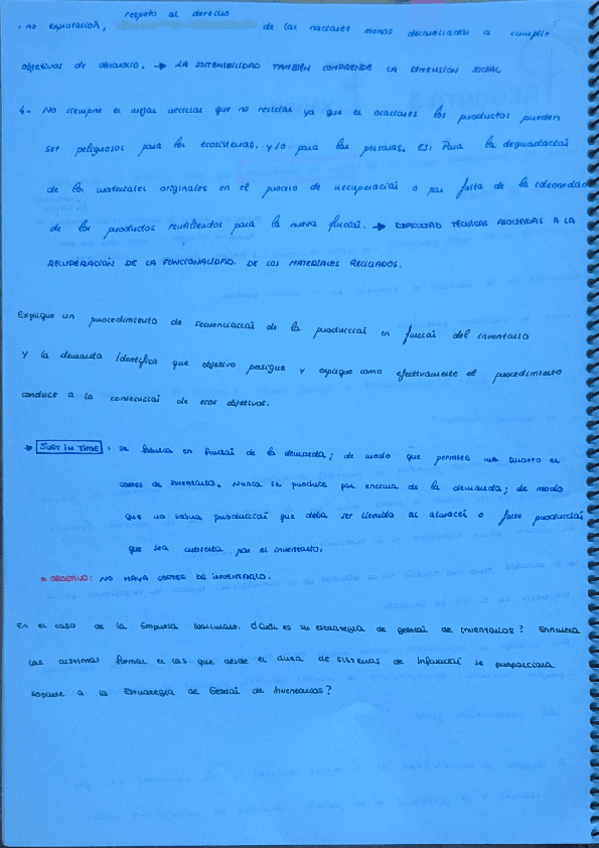 respeto al derecho
· no explotación, de las naciones menos desarrolladas a cumplir
objetivos de desarrollo. → LA SOSTENIBILIDAD TAMBIÉN COMPRENDE LA DIMENSIÓN SOCIAL
No siempre es mejor reciclar que no reciclar ya que en ocasiones los productos pueden
ser peligrosos para los ecosistemas y/o para las personas. Es: Para la degradación
de los materiales originales en el proceso de recuperación o por falta de la idoneidad
de los productos reutilizados para la nueva función. → DIFICULTAD TÉCNICAS ASOCIADAS A LA
RECUPERACIÓN DE LA FUNCIONALIDAD. DE LOS MATERIALES RECICLADOS.
Explique un procedimiento de secuenciación de la producción en función del inventario
y la demanda Identifica que objetivo persigue y explique como efectivamente el procedimiento
conduce a la consecución de esos objetivos.
→ JUST IN TIME: Se fabrica en función de la demanda; de modo que permite
costes de inventario. Nunca se produce por encima de la demanda; de modo
que no producción que deba ser llevada al almacén o falte producción
que sea cubierta por el inventario.
OBJETIVO: NO HAYA COSTES DE INVENTARIO.
En el caso de la Empresa ¿Cuál es su estrategia de Gestión de Inventarios? Enumera
las formas en las que desde el área de Sistemas de Información se proporciona
soporte a la Estrategia de Gestión de Inventarios?